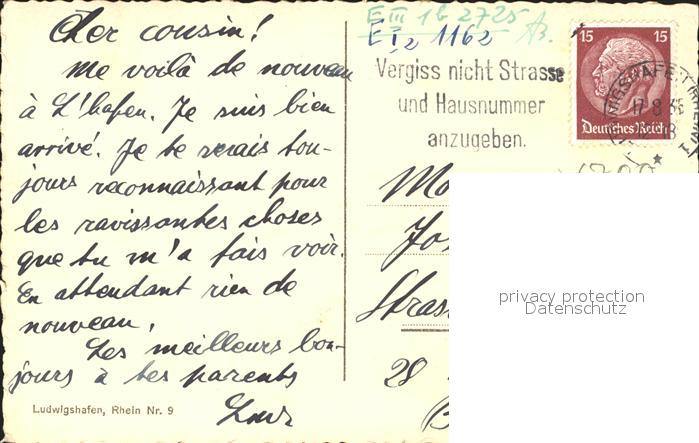 Cher cousin!
Me voilà de nouveau
à L'hafen. Je suis bien
arrivé. Je te serais tou-
jours reconnaissant pour
les ravissantes choses
que tu m'a fais voir.
En attendant rien de
nouveau,
Les meilleurs bon-
jours à tes parents
Ludwigshafen, Rhein Nr. 9
E III 1b 2725
E I2 1162
Vergiss nicht Strasse
und Hausnummer
anzugeben.
15 15
Deutsches Reich
17.8.
Stras
28
privacy protection
Datenschutz